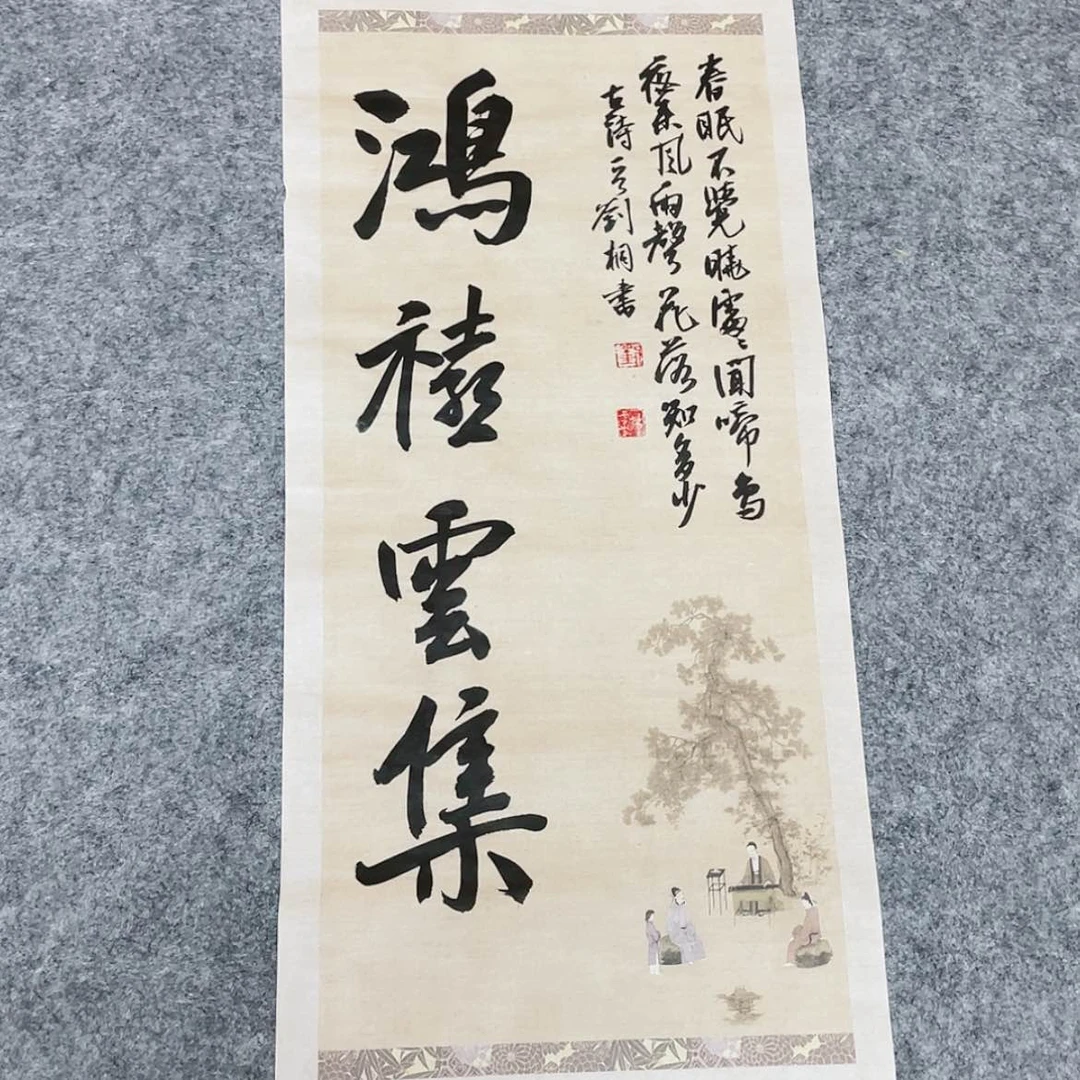 春眠不覺曉處々聞啼鳥
夜來風雨聲花落知多少
古詩一首劉桐書
鴻禧雲集